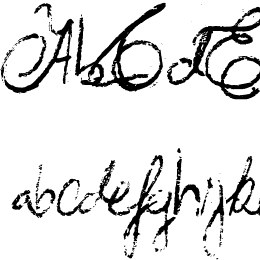 AbCdE
abcdefghijk